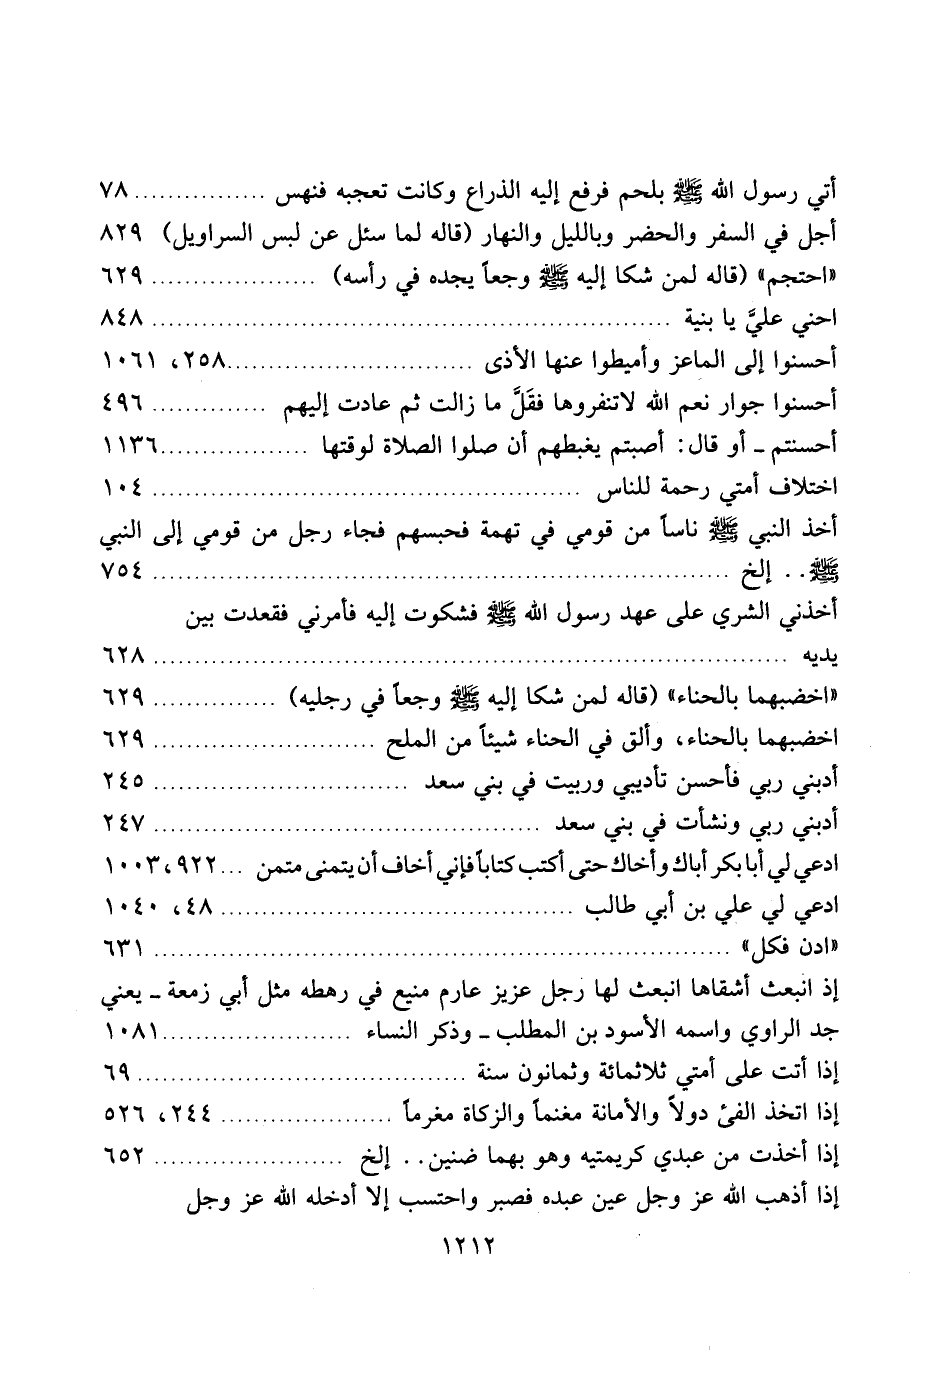 أتي رسول الله ﷺ بلحم فرفع إليه الذراع وكانت تعجبه فنهس ................ ٧٨
أجل في السفر والحضر وبالليل والنهار (قاله لما سئل عن لبس السراويل) ٨٢٩
«احتجم» (قاله لمن شكا إليه ﷺ وجعاً يجده في رأسه) .................... ٦٢٩
احني عليَّ يا بنية ............................................................ ٨٤٨
أحسنوا إلى الماعز وأميطوا عنها الأذى .............................. ٢٥٨، ١٠٦١
أحسنوا جوار نعم الله لاتنفروها فقَلَّ ما زالت ثم عادت إليهم .............. ٤٩٦
أحسنتم ـ أو قال: أصبتم يغبطهم أن صلوا الصلاة لوقتها .................. ١١٣٦
اختلاف أمتي رحمة للناس .................................................... ١٠٤
أخذ النبي ﷺ ناساً من قومي في تهمة فحبسهم فجاء رجل من قومي إلى النبي
ﷺ.. إلخ .................................................................... ٧٥٤
أخذني الشري على عهد رسول الله ﷺ فشكوت إليه فأمرني فقعدت بين
يديه .......................................................................... ٦٢٨
«اخضبهما بالحناء» (قاله لمن شكا إليه ﷺ وجعاً في رجليه) ............... ٦٢٩
اخضبهما بالحناء، وألق في الحناء شيئاً من الملح ........................... ٦٢٩
أدبني ربي فأحسن تأديبي وربيت في بني سعد ............................... ٢٤٥
أدبني ربي ونشأت في بني سعد .............................................. ٢٤٧
ادعي لي أبا بكر أباك وأخاك حتى أكتب كتاباً فإني أخاف أن يتمنى متمن ... ٩٢٢، ١٠٠٣
ادعي لي علي بن أبي طالب ......................................... ٤٨، ١٠٤٠
«ادن فكل» ................................................................... ٦٣١
إذ انبعث أشقاها انبعث لها رجل عزيز عارم منيع في رهطه مثل أبي زمعة ـ يعني
جد الراوي واسمه الأسود بن المطلب ـ وذكر النساء ....................... ١٠٨١
إذا أتت على أمتي ثلاثمائة وثمانون سنة ....................................... ٦٩
إذا اتخذ الفئ دولاً والأمانة مغنماً والزكاة مغرماً .................... ٢٤٤، ٥٢٦
إذا أخذت من عبدي كريمتيه وهو بهما ضنين.. إلخ ....................... ٦٥٢
إذا أذهب الله عز وجل عين عبده فصبر واحتسب إلا أدخله الله عز وجل
١٢١٢